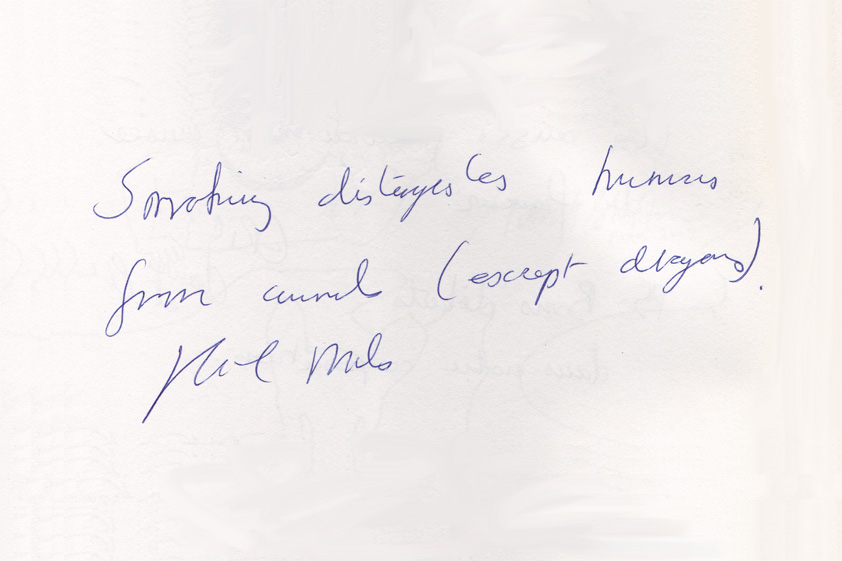 Smoking distinguishes humans
from animals (except dragons).